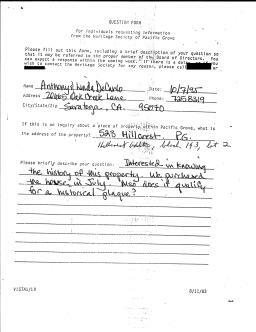 QUESTION FORM
For individuals requesting information
from the Heritage Society of Pacific Grove
Please fill out this form, including a brief description of your question so
that it may be referred to the proper member of the Board of Directors. You
can expect a response within the coming week. If there is a
wish to contact the Heritage Society for any reason, please call or
Name Anthony & Linda DeCarlo Date: 10/7/95
Address 20165 Oak Creek Lane Phone: 725 8319
City/State/Zip Saratoga, CA. 95070
If this is an inquiry about a piece of property within Pacific Grove, what is
the address of the property? 528 Hillcrest P.G.
block 143, lot 2
Please briefly describe your question: Interested in knowing
the history of this property. We purchased
the house in July. Also does it qualify
for a historical plaque?
8/11/83